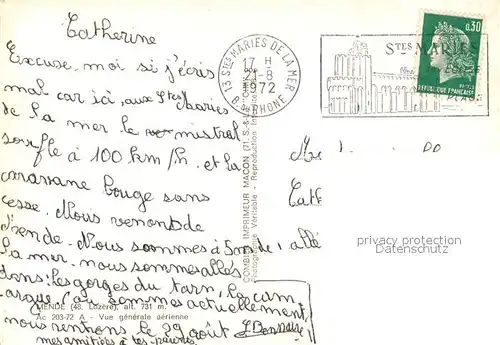 Catherine
Excuse-moi si j'écris
mal car ici, aux Stes Maries
de la mer le mistral
souffle à 100 km/h. et la
caravane bouge sans
cesse. Nous venons de
Mende. Nous sommes à 5m de
la mer. nous sommes allés
dans les gorges du tarn, la cam
argue (où sommes actuellement)
nous rentrons le 29 août
mes amitiés à tes
J Bonnaise
allé
MENDE (48. Lozère), alt. 731 m.
Ac 203-72 A - Vue générale aérienne
COMBIER IMPRIMEUR MACON (71. S.-&-L.
Photographie Véritable - Reproduction Interdite
13 STES MARIES DE LA MER
17 H
21-8
1972
B. DU RHONE
STES MARIES
PLAGE
0,30
REPUBLIQUE FRANÇAISE
POSTES
Cath
privacy protection
AnsichtskartenCenter